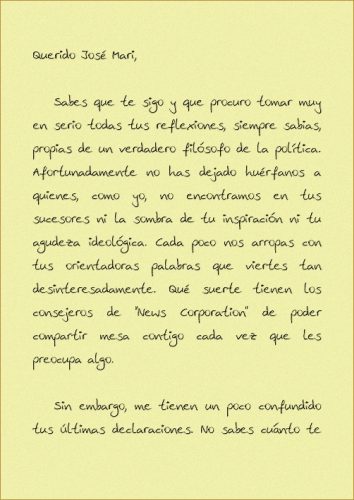 Querido José Mari,
Sabes que te sigo y que procuro tomar muy
en serio todas tus reflexiones, siempre sabias,
propias de un verdadero filósofo de la política.
Afortunadamente no has dejado huérfanos a
quienes, como yo, no encontramos en tus
sucesores ni la sombra de tu inspiración ni tu
agudeza ideológica. Cada poco nos arropas con
tus orientadoras palabras que viertes tan
desinteresadamente. Qué suerte tienen los
consejeros de "News Corporation" de poder
compartir mesa contigo cada vez que les
preocupa algo.
Sin embargo, me tienen un poco confundido
tus últimas declaraciones. No sabes cuánto te